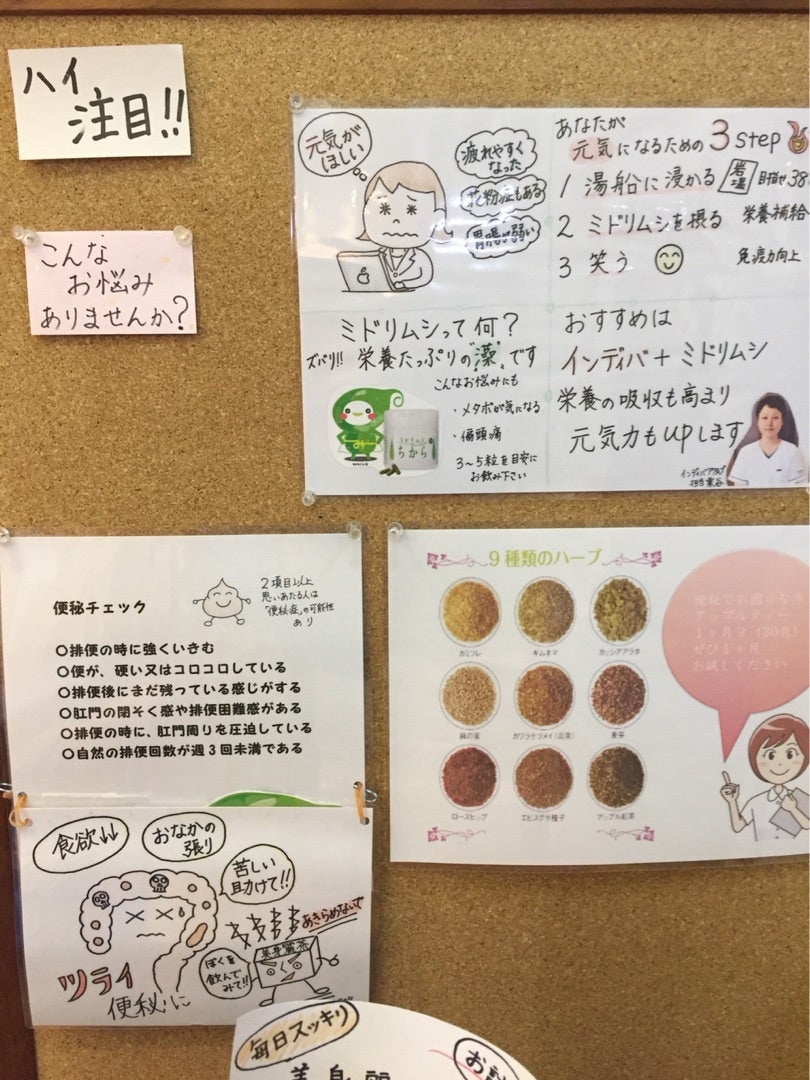 ハイ
注目!!
こんな
お悩み
ありませんか?
元気が
ほしい
疲れやすく
なった
花粉症もある
胃腸が弱い
あなたが
元気になるための 3 Step
1 湯船に浸かる 岩塩 目指せ38
2 ミドリムシを摂る 栄養補給
3 笑う 免疫力向上
ミドリムシって何?
ズバリ!! 栄養たっぷりの"藻"です
こんなお悩みにも
・メタボが気になる
・偏頭痛
3〜5粒を目安に
お飲み下さい
ちから
おすすめは
インディバ+ミドリムシ
栄養の吸収も高まり
元気力もupします
便秘チェック
2項目以上
思いあたる人は
「便秘症」の可能性
あり
○排便の時に強くいきむ
○便が、硬い又はコロコロしている
○排便後にまだ残っている感じがする
○肛門の閉そく感や排便困難感がある
○排便の時に、肛門周りを圧迫している
○自然の排便回数が週3回未満である
食欲↓↓
おなかの
張り
苦しい
助けて!!
あきらめないで
ぼくを
飲んで
みて!!
美身麗茶
ツライ
便秘に
毎日スッキリ
9種類のハーブ
カミツレ
ギムネマ
カッシアアラタ
麻の実
カワラケツメイ(浜茶)
麦芽
ローズヒップ
エビスグサ種子
アップル紅茶
アップルティー
1ヶ月分(30包)
ぜひ1ヶ月
お試しください